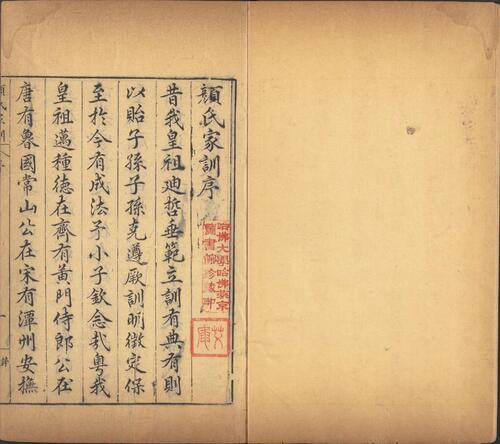 顏氏家訓序
昔我皇祖廸哲垂範立訓有典有則
以貽子孫子孫克遵厥訓明徵定保
至於今有成法予小子欽念哉粵我
皇祖邁種德在齊有黃門侍郎公在
唐有魯國常山公在宋有潭州安撫
哈佛大學哈佛燕京
圖書館珍藏印